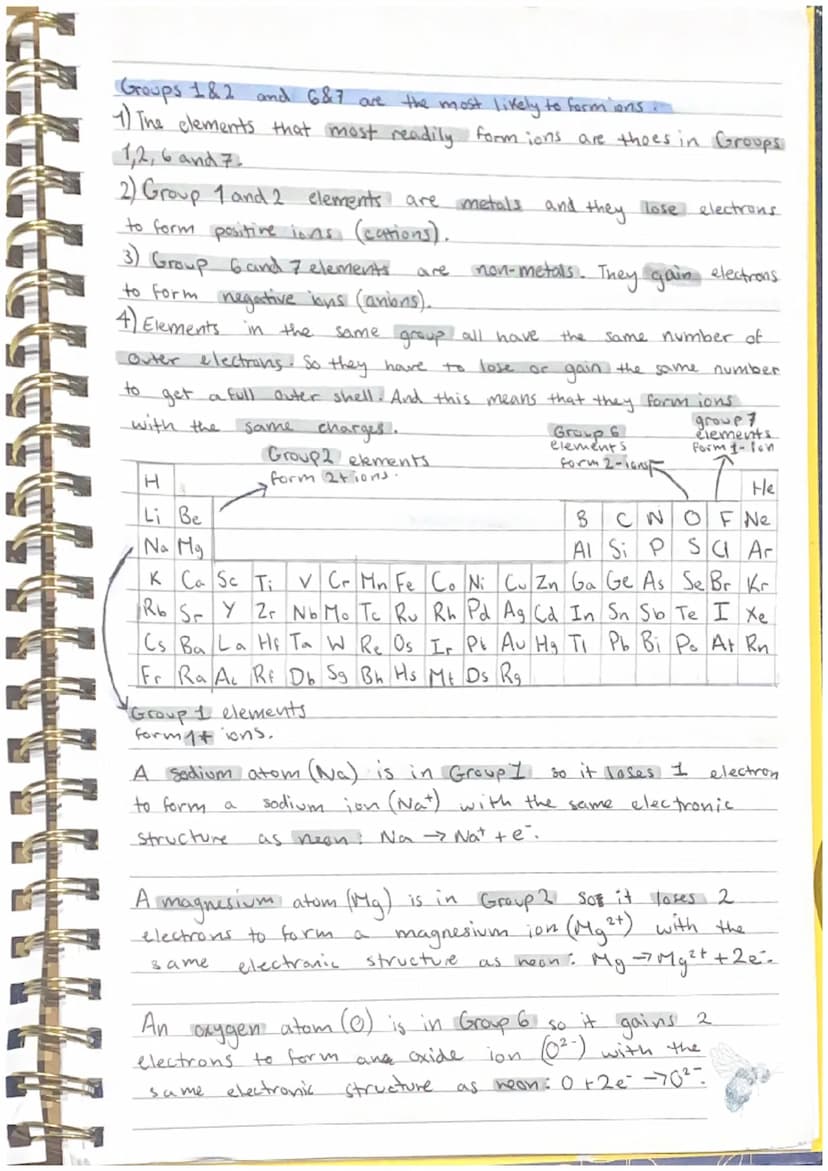 Groups 1&2 and 6&7 are the most likely to form ions.
1) The elements that most readily form ions are thoes in Groups
1,2, 6 and 7.
2) Group 1 and 2 elements are metals and they lose electrons
to form positive ions (cations).
3) Group 6 and 7 elements are non-metals. They gain electrons
to form negative ions (anions).
4) Elements in the same group all have the same number of
outer electrons. So they have to lose or gain the same number
to get a full outer shell. And this means that they form ions
with the same charges.
Group 2 elements
form 2+ ions.
Group 6
elements
form 2- ions
group 7
elements
form 1- ion
H He
Li Be B C N O F Ne
Na Mg Al Si P S Cl Ar
K Ca Sc Ti V Cr Mn Fe Co Ni Cu Zn Ga Ge As Se Br Kr
Rb Sr Y Zr Nb Mo Tc Ru Rh Pd Ag Cd In Sn Sb Te I Xe
Cs Ba La Hf Ta W Re Os Ir Pt Au Hg Tl Pb Bi Po At Rn
Fr Ra Ac Rf Db Sg Bh Hs Mt Ds Rg
Group 1 elements
form 1+ ions.
A sodium atom (Na) is in Group 1 so it loses 1 electron
to form a sodium ion (Na⁺) with the same electronic
structure as neon: Na → Na⁺ + e⁻.
A magnesium atom (Mg) is in Group 2 so it loses 2
electrons to form a magnesium ion (Mg²⁺) with the
same electronic structure as neon: Mg → Mg²⁺ + 2e⁻.
An oxygen atom (O) is in Group 6 so it gains 2
electrons to form an oxide ion (O²⁻) with the
same electronic structure as neon: O + 2e⁻ → O²⁻.